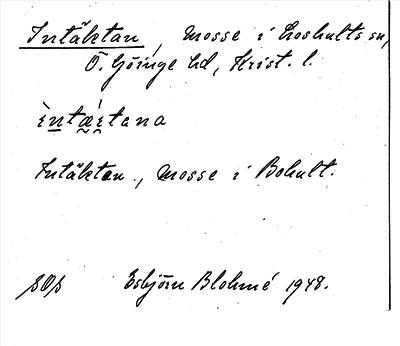 Intäktan, mosse i Loshults sn,
Ö. Göinge hd, Krist. l.
ìntǽ̰ḭtana
Intäktan, mosse i Bohult.
SOS Esbjörn Blohmé 1948.